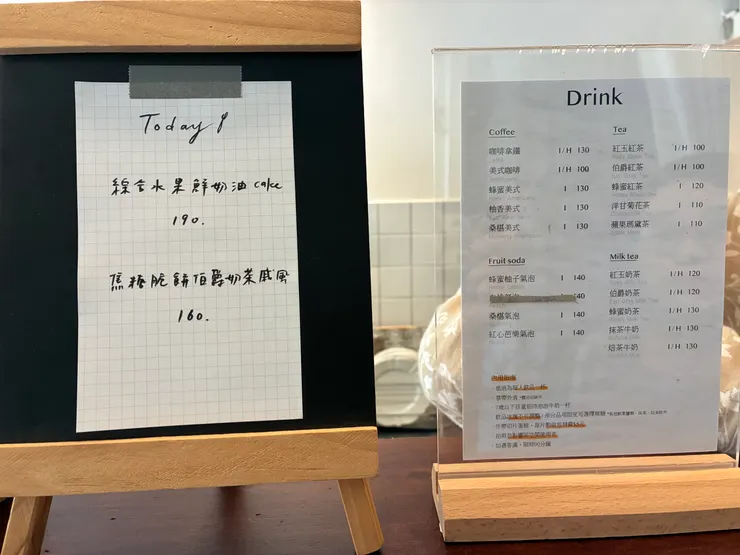 Today
綜合水果鮮奶油 cake
190.
焦糖脆餅伯爵奶茶戚風
160.
Drink
Coffee
咖啡拿鐵 I/H 130
美式咖啡 I/H 100
蜂蜜美式 I 130
柚香美式 I 130
桑椹美式 I 130
Fruit soda
蜂蜜柚子氣泡 I 140
I 140
桑椹氣泡 I 140
紅心芭樂氣泡 I 140
Tea
紅玉紅茶 I/H 100
伯爵紅茶 I/H 100
蜂蜜紅茶 I 120
洋甘菊花茶 I 110
蘋果瑪黛茶 I 110
Milk tea
紅玉奶茶 I/H 120
伯爵奶茶 I/H 120
蜂蜜奶茶 I/H 130
抹茶牛奶 I/H 130
焙茶牛奶 I/H 130
內用低消
低消為每人飲品一杯
禁帶外食
如遇客滿，限時90分鐘